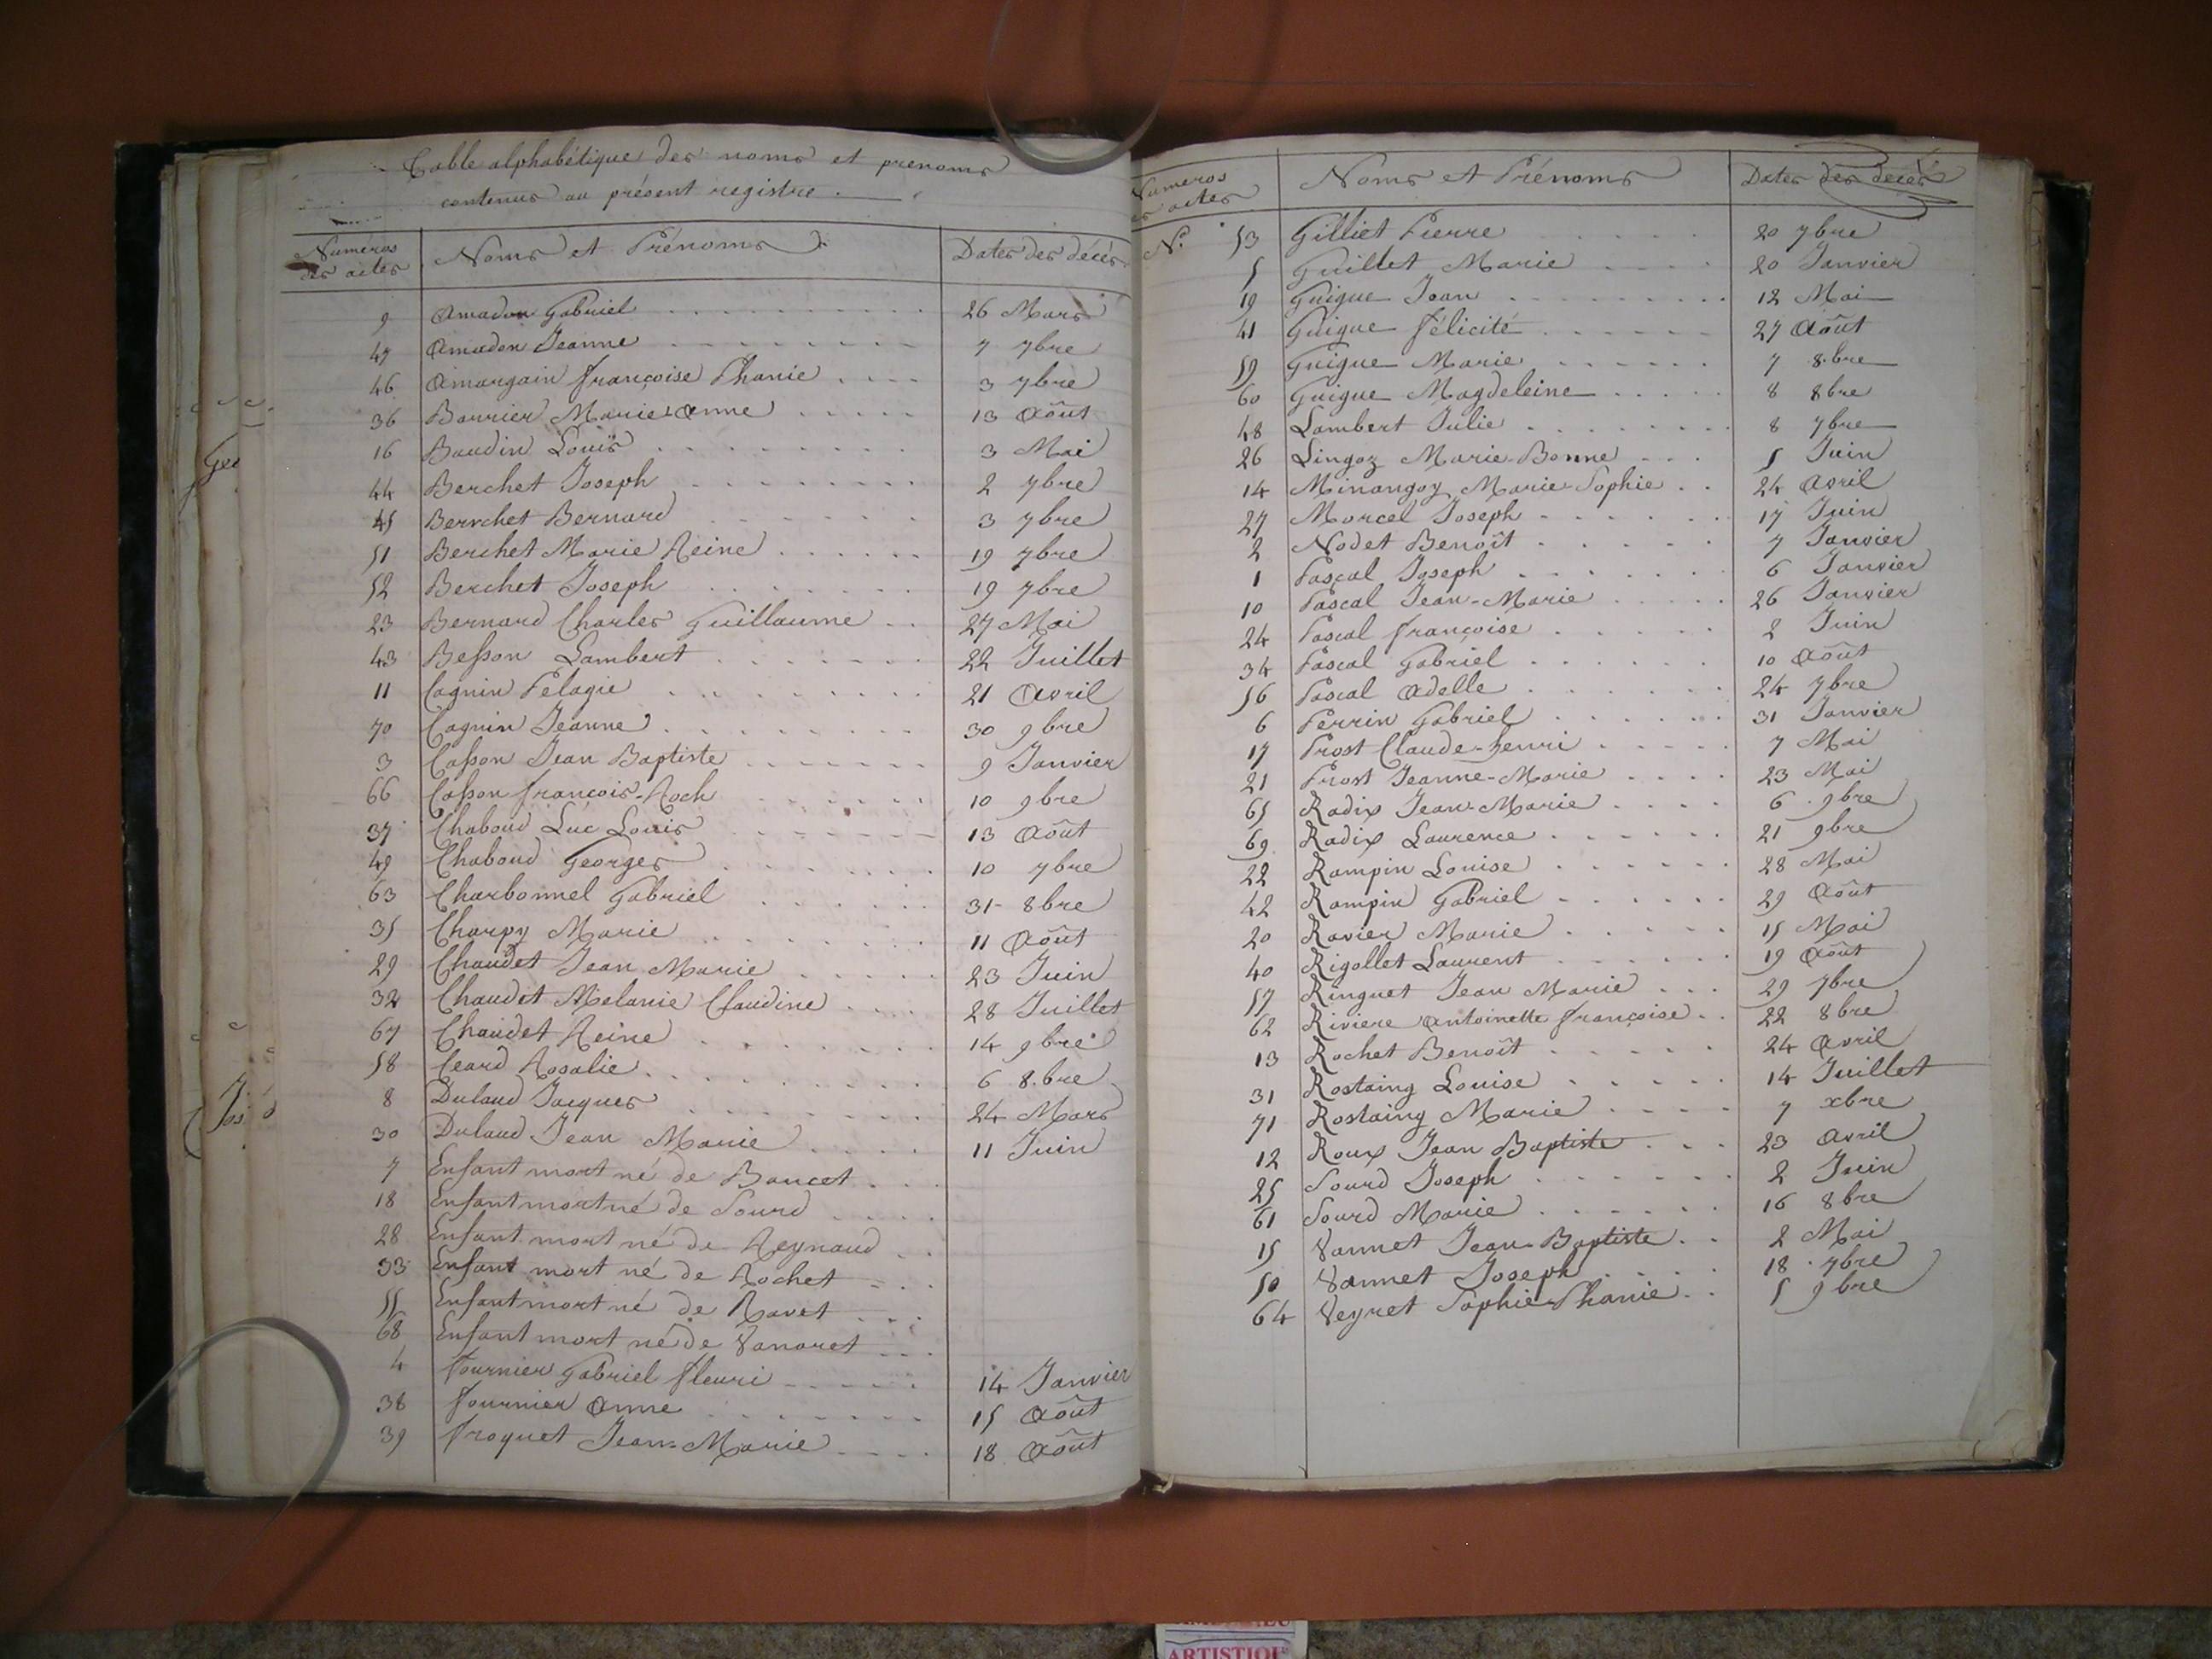 Table alphabétique des noms et prenoms
contenus au présent registre.
Numéros des actes Noms et Prénoms Dates des décès
9 Amadon Gabriel 26 Mars
47 Amadon Jeanne 7 7bre
46 Amargain françoise Phanie 3 7bre
36 Barrier Marie anne 13 Août
16 Baudin Louis 3 Mai
44 Berchet Joseph 2 7bre
45 Berrchet Bernard 3 7bre
51 Berchet Marie Reine 19 7bre
52 Berchet Joseph 19 7bre
23 Bernard Charles Guillaume 27 Mai
43 Besson Lambert 22 Juillet
11 Cagnin Pelagie 21 Avril
70 Cagnin Jeanne 30 9bre
3 Casson Jean Baptiste 9 Janvier
66 Casson françois-Roch 10 9bre
37 Chaboud Luc Louis 13 Août
49 Chaboud Georges 10 7bre
63 Charbonnel Gabriel 31 8bre
35 Charpy Marie 11 Août
29 Chaudet Jean Marie 23 Juin
32 Chaudet Melanie Claudine 28 Juillet
67 Chaudet Reine 14 9bre
58 Ceard Rosalie 6 8.bre
8 Dulaud Jacques 24 Mars
30 Dulaud Jean Marie 11 Juin
7 Enfant mort né de Bancet
18 Enfant mort né de Sourd
28 Enfant mort né de Reynaud
33 Enfant mort né de Rochet
55 Enfant mort né de Ravet
68 Enfant mort né de Vanaret
4 Fournier Gabriel fleuri 14 Janvier
38 Fournier Anne 15 Août
39 Froquet Jean-Marie 18 Août
Geo
Jos
Numeros des actes Noms et Prénoms Dates des décès
N.° 53 Gilliet Pierre 20 7bre
5 Guillet Marie 20 Janvier
19 Guigue Jean 12 Mai
41 Guigue félicité 27 Août
59 Guigue Marie 7 8.bre
60 Guigue Magdeleine 8 8bre
48 Lambert Julie 8 7bre
26 Lingoz Marie-Bonne 5 Juin
14 Minangoy Marie-Sophie 24 Avril
27 Marcel Joseph 17 Juin
2 Nodet Benoît 7 Janvier
1 Pascal Joseph 6 Janvier
10 Pascal Jean-Marie 26 Janvier
24 Pascal françoise 2 Juin
34 Pascal Gabriel 10 Août
56 Pascal Adelle 24 7bre
6 Perrin Gabriel 31 Janvier
17 Prost Claude-henri 7 Mai
21 Prost Jeanne-Marie 23 Mai
65 Radix Jean-Marie 6 9bre
69 Radix Laurence 21 9bre
22 Rampin Louise 28 Mai
42 Rampin Gabriel 29 Août
20 Ravier Marie 15 Mai
40 Rigollet Laurent 19 Août
57 Ringuet Jean Marie 29 7bre
62 Riviere Antoinette françoise 22 8bre
13 Rochet Benoît 24 Avril
31 Rostaing Louise 14 Juillet
71 Rostaing Marie 7 xbre
12 Roux Jean Baptiste 23 Avril
25 Sourd Joseph 2 Juin
61 Sourd Marie 16 8bre
15 Vannet Jean-Baptiste 2 Mai
50 Vannet Joseph 18 7bre
64 Veyret Sophie Phanie 5 9bre
ARTISTIQUE